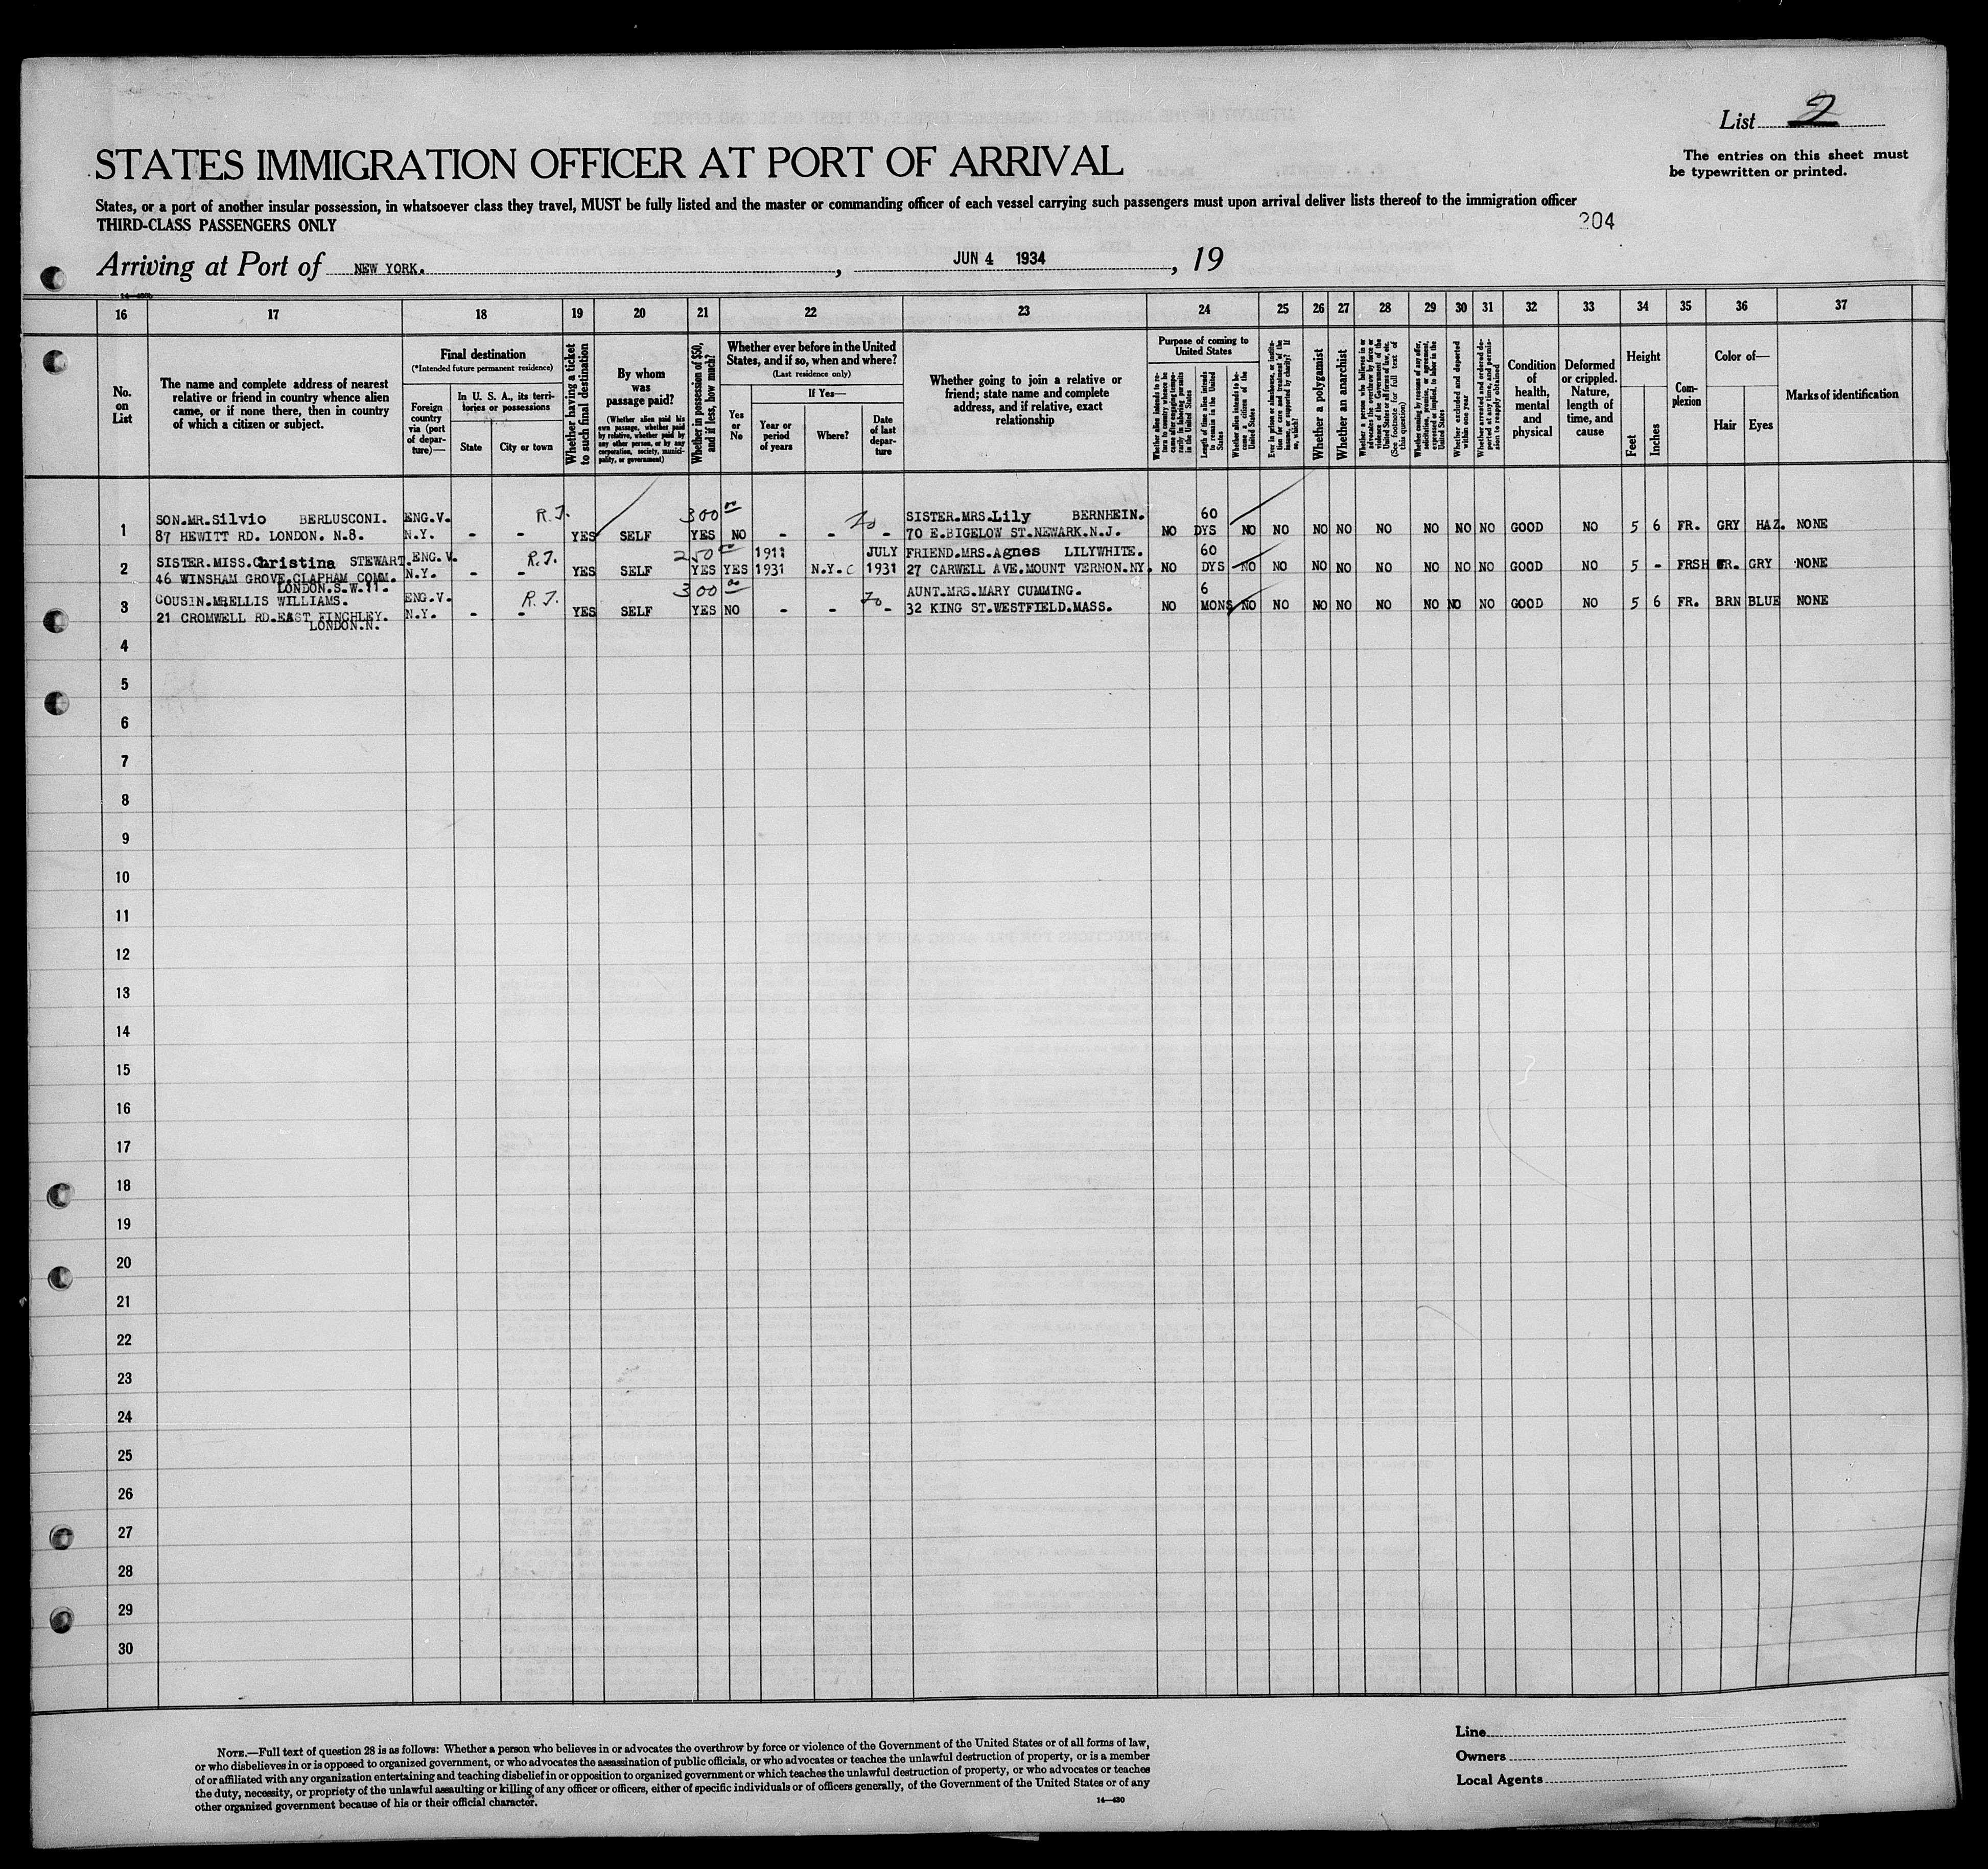 List 2
The entries on this sheet must
be typewritten or printed.
STATES IMMIGRATION OFFICER AT PORT OF ARRIVAL
States, or a port of another insular possession, in whatsoever class they travel, MUST be fully listed and the master or commanding officer of each vessel carrying such passengers must upon arrival deliver lists thereof to the immigration officer
THIRD-CLASS PASSENGERS ONLY
204
Arriving at Port of NEW YORK. , JUN 4 1934 , 19
16 17 18 19 20 21 22 23 24 25 26 27 28 29 30 31 32 33 34 35 36 37
No.
on
List
The name and complete address of nearest
relative or friend in country whence alien
came, or if none there, then in country
of which a citizen or subject.
Final destination
(*Intended future permanent residence)
Foreign
country
via (port
of depar-
ture)—
In U. S. A., its terri-
tories or possessions
State
City or town
Whether having a ticket
to such final destination
By whom
was
passage paid?
(Whether alien paid his
own passage, whether paid
by relative, whether paid by
any other person, or by any
corporation, society, munici-
pality, or government)
Whether in possession of $50,
and if less, how much?
Whether ever before in the United
States, and if so, when and where?
(Last residence only)
Yes
or
No
If Yes—
Year or
period
of years
Where?
Date
of last
depar-
ture
Whether going to join a relative or
friend; state name and complete
address, and if relative, exact
relationship
Purpose of coming to
United States
Whether alien intends to re-
turn to country whence he
came after engaging tempo-
rarily in laboring pursuits
in the United States
Length of time alien intends
to remain in the United
States
Whether alien intends to be-
come a citizen of the
United States
Ever in prison or almshouse, or institu-
tion for care and treatment of the
insane, or supported by charity? If
so, which?
Whether a polygamist
Whether an anarchist
Whether a person who believes in or
advocates the overthrow by force or
violence of the Government of the
United States or all forms of law, etc.
(See footnote for full text of
this question)
Whether coming by reason of any offer,
solicitation, promise, or agreement,
expressed or implied, to labor in the
United States
Whether excluded and deported
within one year
Whether arrested and ordered de-
ported at any time, and permis-
sion to reapply obtained
Condition
of
health,
mental
and
physical
Deformed
or crippled.
Nature,
length of
time, and
cause
Height
Feet
Inches
Com-
plexion
Color of—
Hair
Eyes
Marks of identification
SON.MR.Silvio BERLUSCONI. ENG.V. R.T. 300 00 SISTER.MRS.Lily BERNHEIN. 60
1 87 HEWITT RD. LONDON. N.8. N.Y. - - YES SELF YES NO - - - 70 E.BIGELOW ST.NEWARK.N.J. NO DYS NO NO NO NO NO NO NO NO GOOD NO 5 6 FR. GRY HAZ. NONE
SISTER.MISS.Christina STEWART. ENG.V. R.T. 250 1911 JULY FRIEND.MRS.Agnes LILYWHITE. 60
2 46 WINSHAM GROVE.CLAPHAM COMM. N.Y. - - YES SELF YES YES 1931 N.Y.C 1931 27 CARWELL AVE.MOUNT VERNON.NY. NO DYS NO NO NO NO NO NO NO NO GOOD NO 5 - FRSH GR. GRY NONE
LONDON.S.W.11.
COUSIN.MRELLIS WILLIAMS. ENG.V. R.T. 300 00 AUNT.MRS.MARY CUMMING. 6
3 21 CROMWELL RD.EAST FINCHLEY. N.Y. - - YES SELF YES NO - - - 32 KING ST.WESTFIELD.MASS. NO MONS NO NO NO NO NO NO NO NO GOOD NO 5 6 FR. BRN BLUE NONE
LONDON.N.
4
5
6
7
8
9
10
11
12
13
14
15
16
17
18
19
20
21
22
23
24
25
26
27
28
29
30
NOTE.—Full text of question 28 is as follows: Whether a person who believes in or advocates the overthrow by force or violence of the Government of the United States or of all forms of law,
or who disbelieves in or is opposed to organized government, or who advocates the assassination of public officials, or who advocates or teaches the unlawful destruction of property, or is a member
of or affiliated with any organization entertaining and teaching disbelief in or opposition to organized government or which teaches the unlawful destruction of property, or who advocates or teaches
the duty, necessity, or propriety of the unlawful assaulting or killing of any officer or officers, either of specific individuals or of officers generally, of the Government of the United States or of any
other organized government because of his or their official character.
14—430
Line
Owners
Local Agents